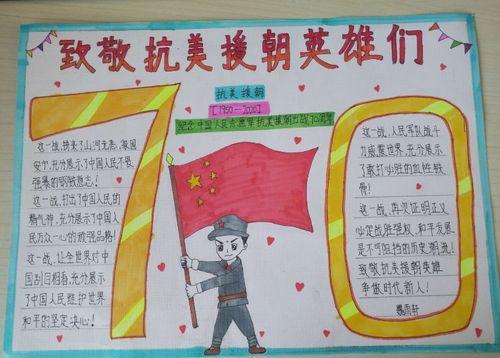 致敬抗美援朝英雄们
抗美援朝
[1950—2020]
纪念中国人民志愿军抗美援朝出战70周年
这一战,拼来了山河无恙,家国
安宁,充分展示了中国人民不畏
强暴的钢铁意志!
这一战,打出了中国人民的
精气神,充分展示了中国人
民万众一心的顽强品格!
这一战,让全世界对中
国刮目相看,充分展示
了中国人民维护世界
和平的坚定决心!
这一战,人民军队战斗
力威震世界,充分展示
了敢打必胜的血性铁
骨!
这一战,再次证明正义
必定战胜强权,和平发展
是不可阻挡的历史潮流!
致敬抗美援朝英雄
争做时代新人!